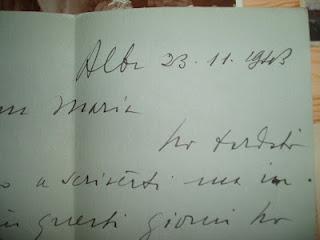 Alba 23.11.1943
Maria
ho tardato
a scriverti ma in
in questi giorni ho